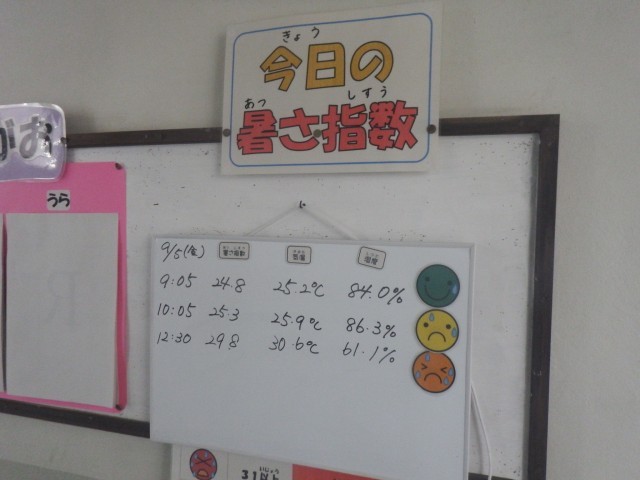 きょう
今日の
あつ しすう
暑さ指数
がお
うら
9/5(金) 暑さ指数 気温 湿度
9:05 24.8 25.2℃ 84.0%
10:05 25.3 25.9℃ 86.3%
12:30 29.8 30.6℃ 61.1%
いじょう
31以上